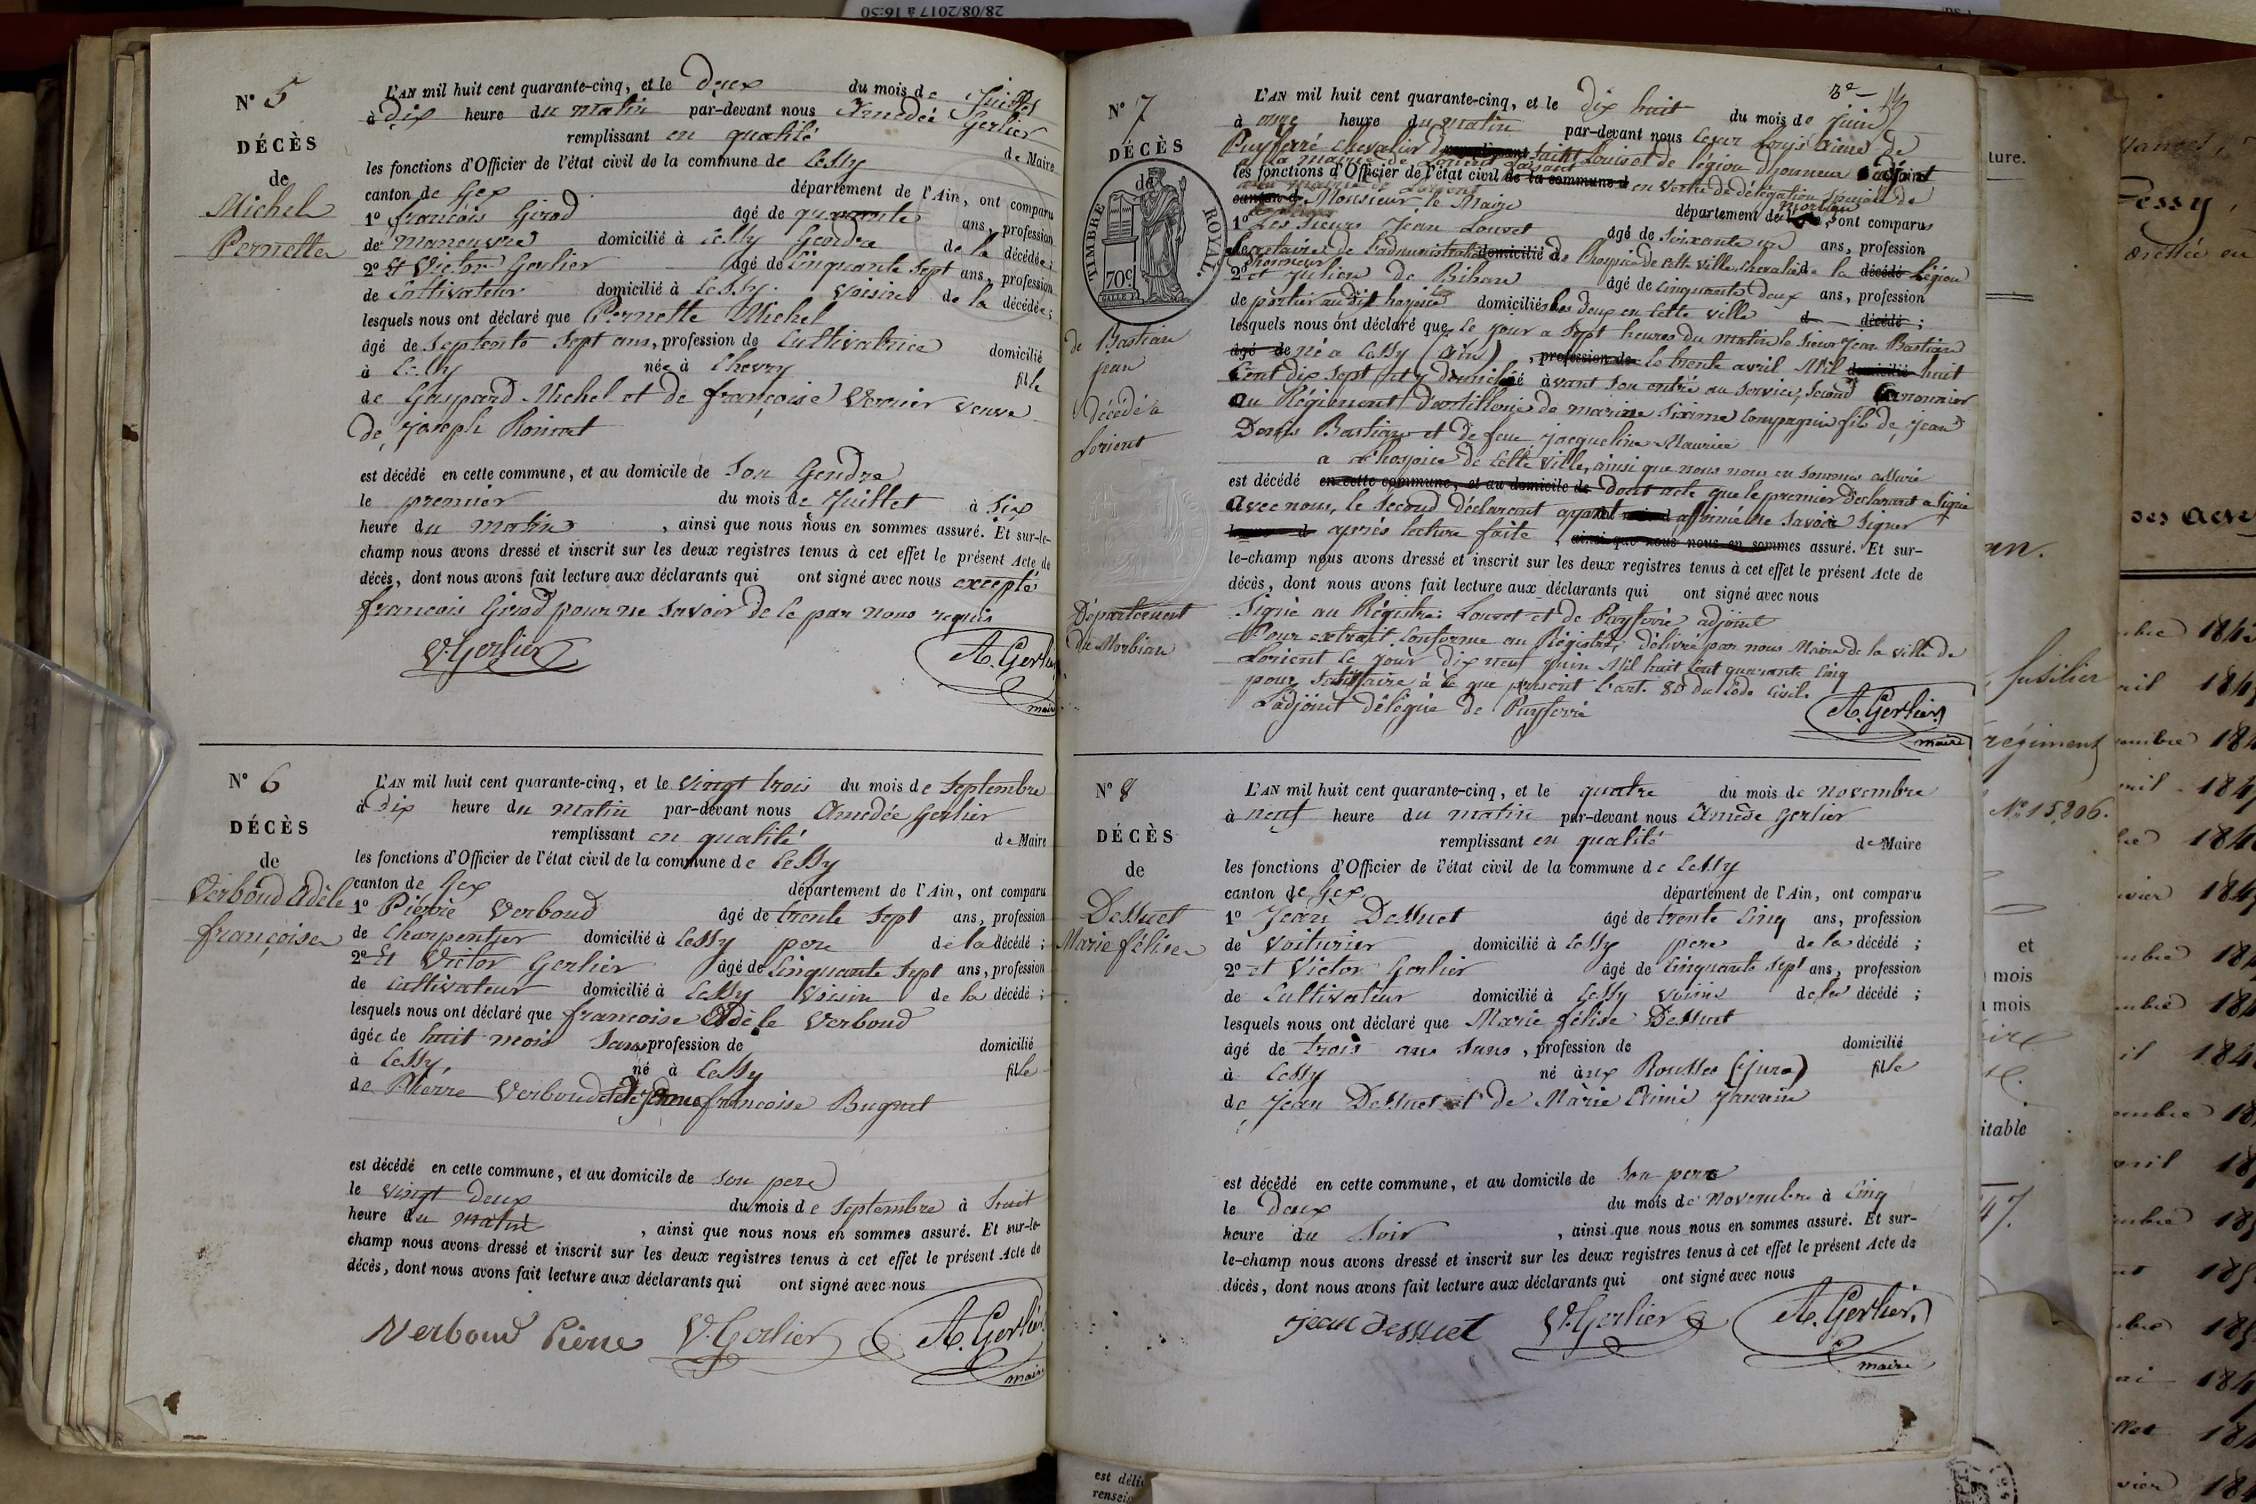 28/08/2017 à 16:50
N° 5
DÉCÈS
de
Michel
Pernette
L'AN mil huit cent quarante-cinq, et le deux du mois de Juillet
à dix heure du matin par-devant nous Amedée Gerlier
remplissant en qualité de Maire
les fonctions d'Officier de l'état civil de la commune de Cessy
canton de Gex département de l'Ain, ont comparu
1° françois Girod âgé de quarante ans, profession
de maneuvre domicilié à Cessy Gendre de la décédée;
2° Et Victor Gerlier âgé de Cinquante sept ans, profession
de Cultivateur domicilié à Cessy voisin de la décédée;
lesquels nous ont déclaré que Pernette Michel
âgé de Septente sept ans, profession de Cultivatrice domicilié
à Cessy née à Chevry fille
de Gaspard Michel et de françoise Vernier veuve
de Joseph
est décédé en cette commune, et au domicile de son Gendre
le premier du mois de Juillet à Six
heure du matin, ainsi que nous nous en sommes assuré. Et sur-le-
champ nous avons dressé et inscrit sur les deux registres tenus à cet effet le présent Acte de
décès, dont nous avons fait lecture aux déclarants qui ont signé avec nous excepté
francois Girod pour ne savoir de ce par nous requis
V. Gerlier A. Gerlier
maire
N° 6
DÉCÈS
de
Verboud Adèle
françoise
L'AN mil huit cent quarante-cinq, et le vingt trois du mois de Septembre
à Dix heure du matin par-devant nous Amedée Gerlier
remplissant en qualité de Maire
les fonctions d'Officier de l'état civil de la commune de Cessy
canton de Gex département de l'Ain, ont comparu
1° Pierre Verboud âgé de trente sept ans, profession
de Charpentier domicilié à Cessy pere de la décédé;
2° Et Victor Gerlier âgé de Cinquante sept ans, profession
de Cultivateur domicilié à Cessy Voisin de la décédé;
lesquels nous ont déclaré que françoise Adèle Verboud
âgée de huit mois Sans profession de domicilié
à Cessy, né à Cessy fille
de Pierre Verboud et de francoise Bugnet
est décédé en cette commune, et au domicile de son pere
le vingt deux du mois de Septembre à huit
heure du matin, ainsi que nous nous en sommes assuré. Et sur-le-
champ nous avons dressé et inscrit sur les deux registres tenus à cet effet le présent Acte de
décès, dont nous avons fait lecture aux déclarants qui ont signé avec nous
Verboud Pierre V. Gerlier A. Gerlier
maire
N° 7
DÉCÈS
de
TIMBRE ROYAL.
70c
de Bastian
jean
décédé à
Lorient
Département
du Morbian
L'AN mil huit cent quarante-cinq, et le Dix huit du mois de Juin
à onze heure du matin par-devant nous Louis aimé de
Puyferré chevalier de Saint Louis et de légion d'honneur adjoint
à la mairie de Lorient
les fonctions d'Officier de l'état civil de la commune d en vertu de délégation spéciale de
canton d Monsieur le Maire département de Morbian, ont comparu
1° Les Sieurs Jean Louvet âgé de soixante un ans, profession
Secretaire de l'administration domicilié de l'hospice de cette ville chevalier de la décédé Légion
d'honneur
2° et Julien de Bihan âgé de cinquante deux ans, profession
de portier au dit hospice domiciliés les deux en cette ville d décédé;
lesquels nous ont déclaré que ce jour a sept heures du matin le sieur Jean Bastian
âgé de né a Cessy (ain), profession de le trente avril Mil domicilié huit
Cent dix sept et y domicilié avant son entrée au service, Second Canonnier
au Régiment d'artillerie de marine sixième Compagnie fils de jean
Denis Bastian et de feue jacqueline Maurice
a l'hospice de cette ville, ainsi que nous nous en sommes assuré
est décédé en cette commune, et au domicile de Dont acte que le premier déclarant a signé
avec nous, le second déclarant ayant affirmé ne savoir signer
après lecture faite, ainsi que nous nous en sommes assuré. Et sur-
le-champ nous avons dressé et inscrit sur les deux registres tenus à cet effet le présent Acte de
décès, dont nous avons fait lecture aux déclarants qui ont signé avec nous
Signé au Régistre: Louvet et de Puyferré adjoint
Pour extrait conforme au Régistre, délivré par nous Maire de la ville de
Lorient le jour dix neuf Juin Mil huit cent quarante Cinq
pour satisfaire à ce que prescrit l'art. 80 du Code Civil.
L'adjoint délégué de Puyferré
A. Gerlier
maire
N° 8
DÉCÈS
de
Dessuet
Marie félise
L'AN mil huit cent quarante-cinq, et le quatre du mois de novembre
à neuf heure du matin par-devant nous Amède Gerlier
remplissant en qualité de Maire
les fonctions d'Officier de l'état civil de la commune de Cessy
canton de Gex département de l'Ain, ont comparu
1° Jean Dessuet âgé de trente Cinq ans, profession
de Voiturier domicilié à Cessy pere de la décédé;
2° et Victor Gerlier âgé de Cinquante sept ans, profession
de Cultivateur domicilié à Cessy voisin de la décédé;
lesquels nous ont déclaré que Marie félise Dessuet
âgé de trois ans sans, profession de domicilié
à Cessy né aux Rousses (jura) fille
de Jean Dessuet et de Marie Aimé
est décédé en cette commune, et au domicile de son pere
le Deux du mois de novembre à Cinq
heure du Soir, ainsi que nous nous en sommes assuré. Et sur-
le-champ nous avons dressé et inscrit sur les deux registres tenus à cet effet le présent Acte de
décès, dont nous avons fait lecture aux déclarants qui ont signé avec nous
jean dessuet V. Gerlier A. Gerlier
maire
ture.
fusilier
régiment
N° 15,806.
et
mois
mois
itable
47.
Cessy,
des actes